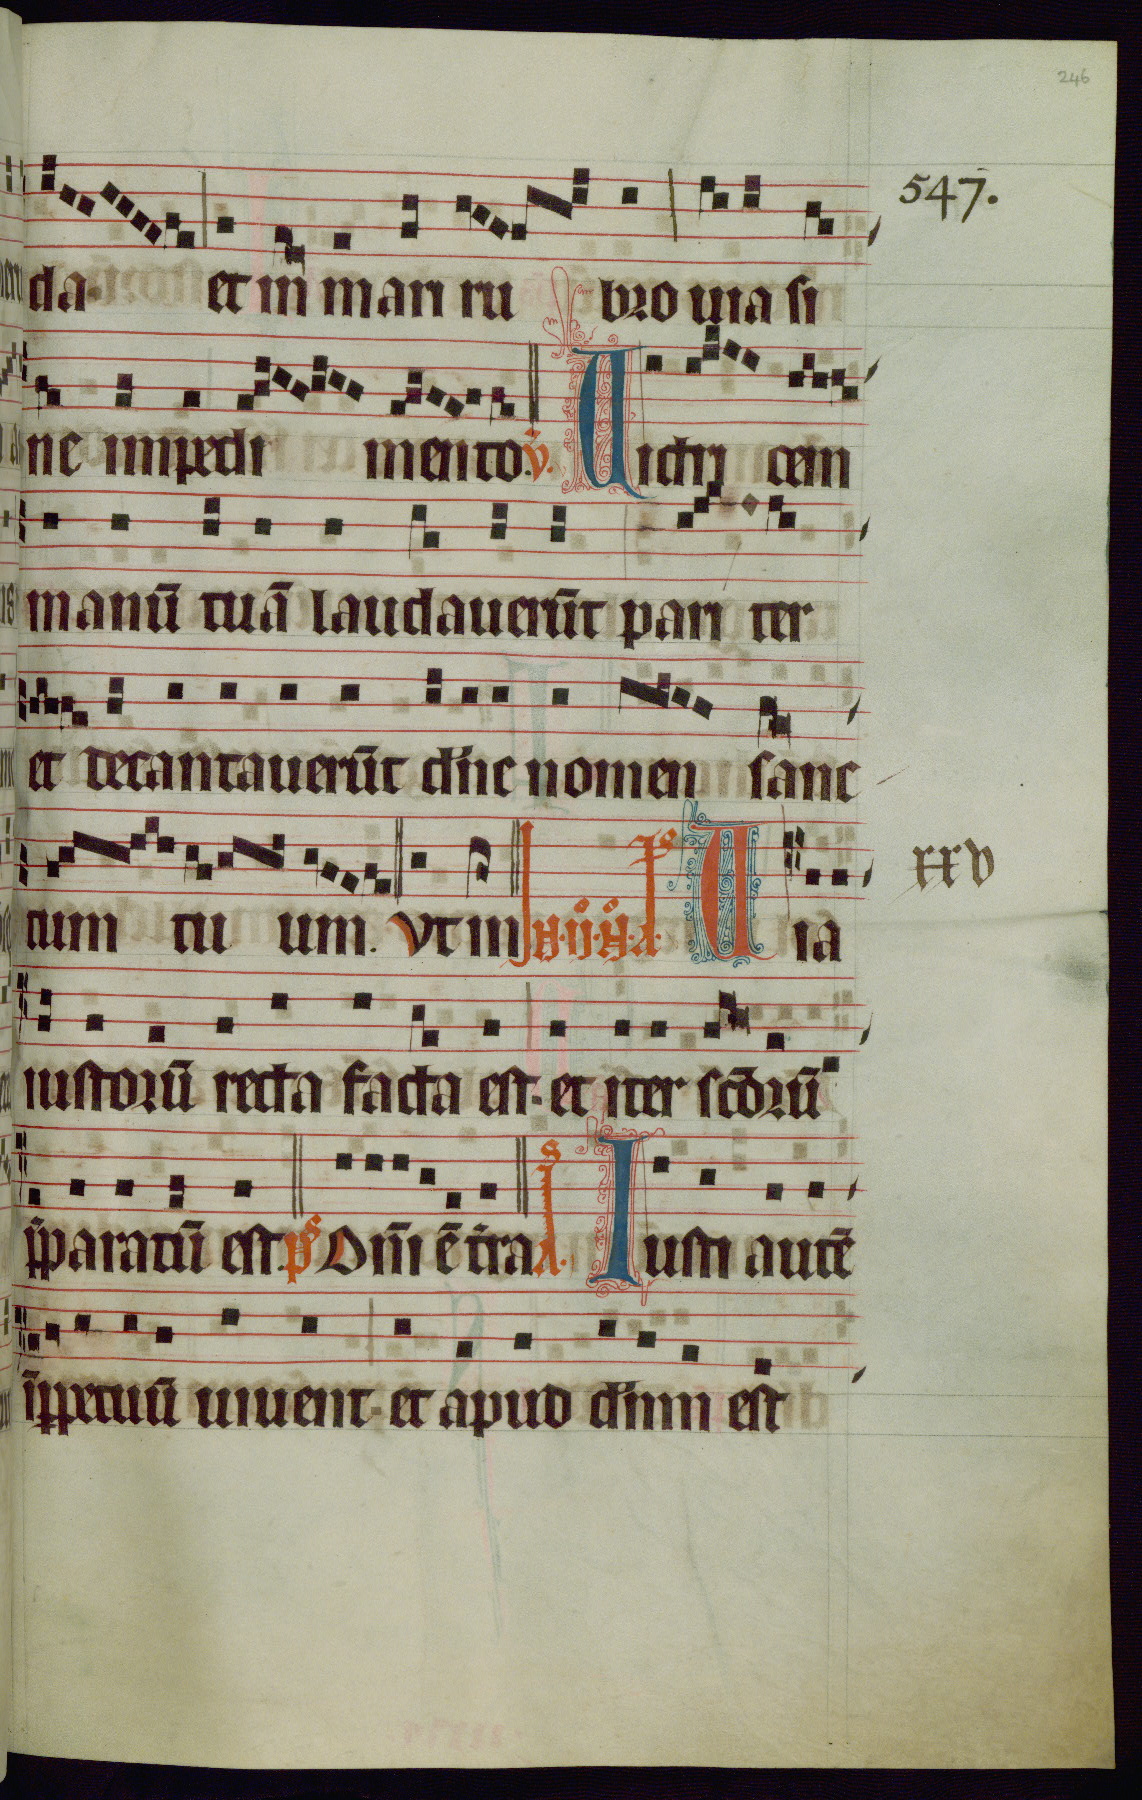 246
547.
da et in mari ru bro uia si
ne impedi mento. v̄. Uictri cem
manū tuā laudauerūt pari ter
et decantauerūt dn̄e nomen sanc
tum tu um. Vt in ps Uia
xxv
iustorū recta facta est. et iter sc̄orū
p̄paratū est. ps Dn̄i ē t̄ra a. Iusti autē
īpp̄etuū uiuent. et apud dn̄m est